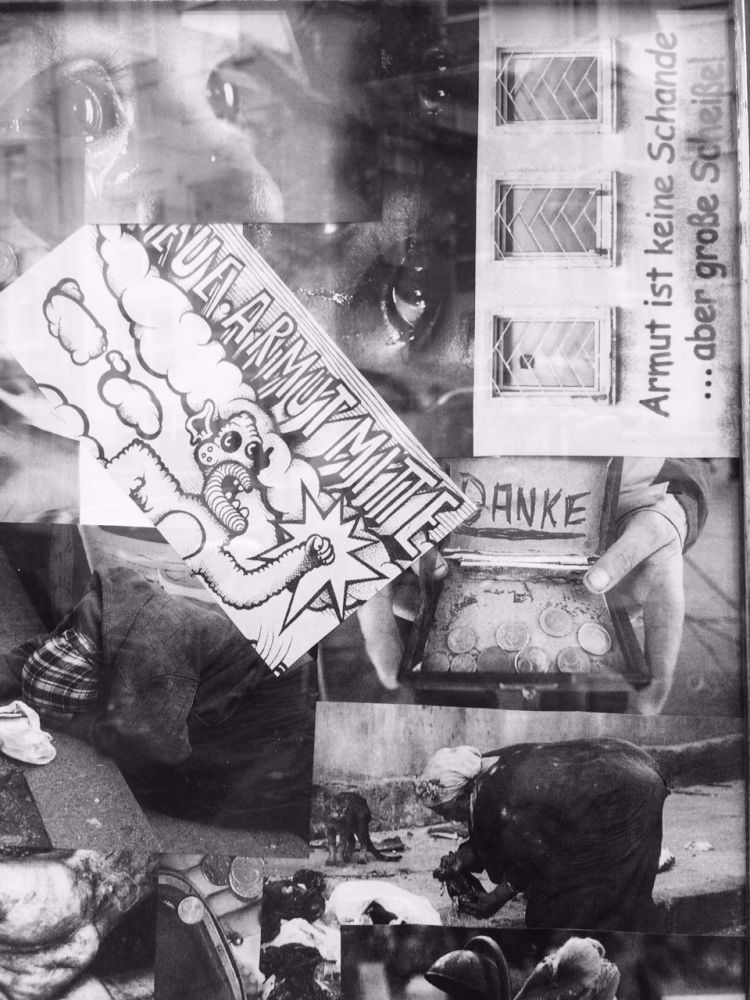 Armut ist keine Schande
... aber große Scheiße!
ARMUT MITTE
DANKE